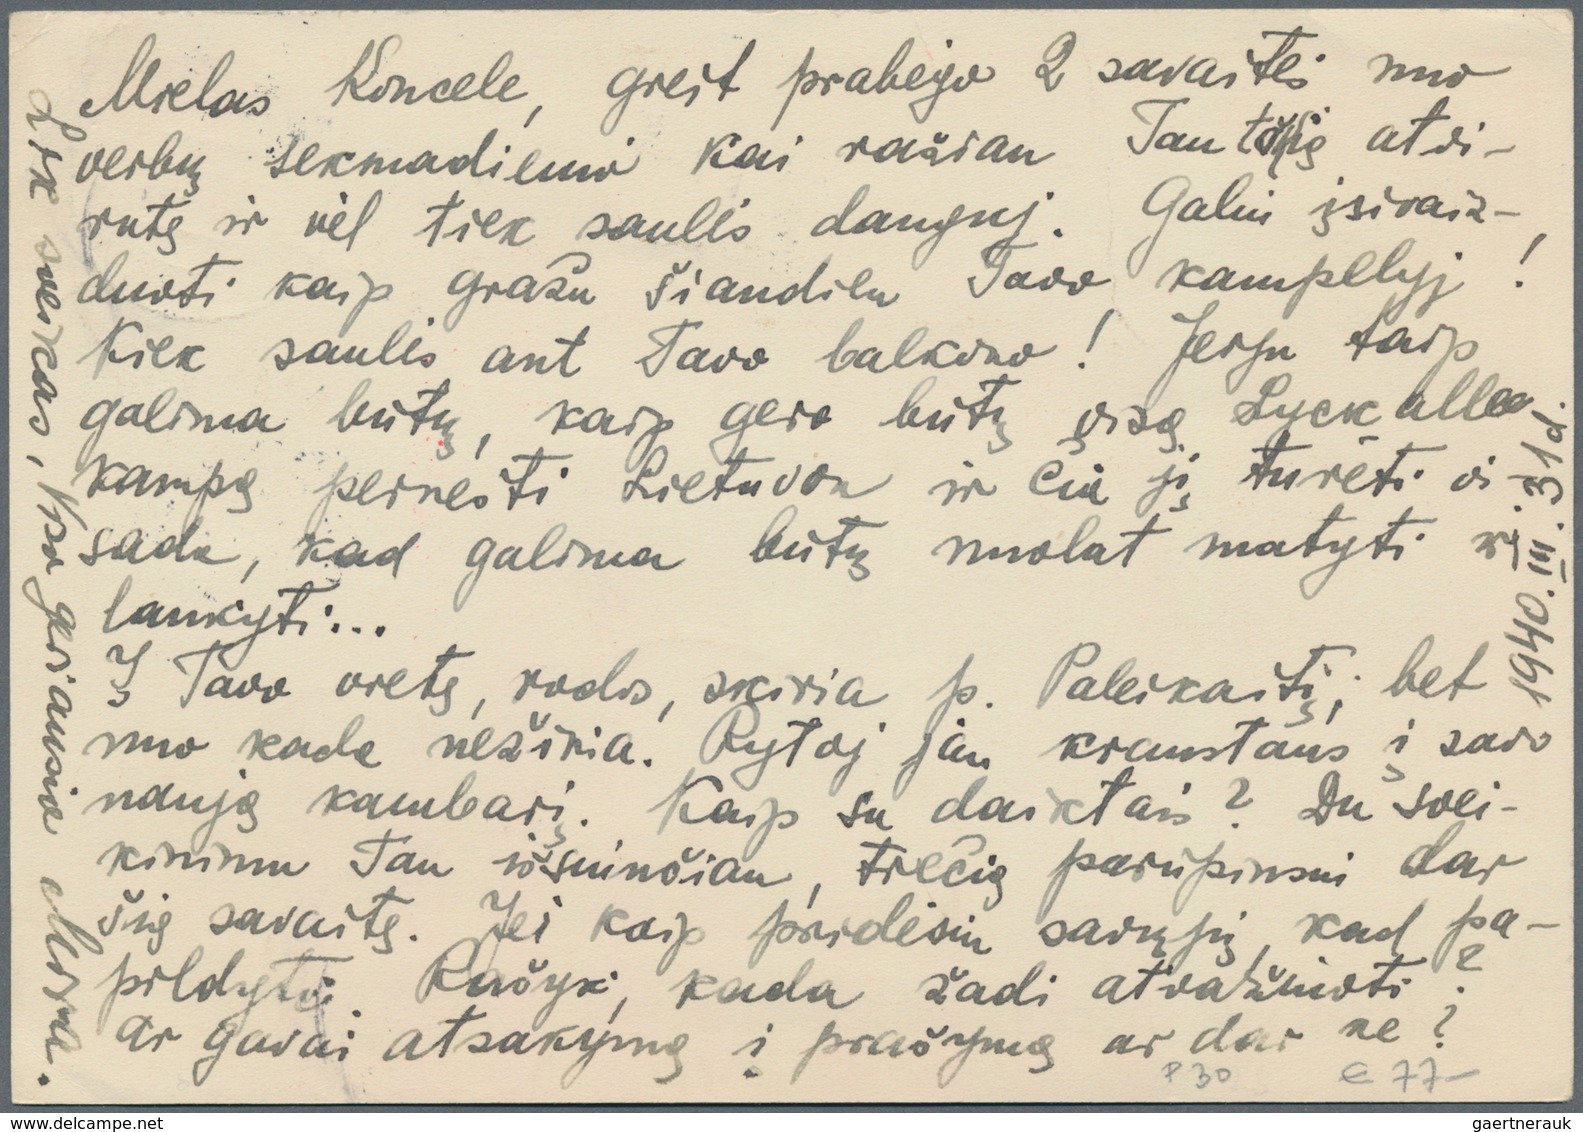 Mielas Koncele, greit prabėgo 2 savaitės nuo
verbų sekmadienio kai rašiau Tau atvi-
rutę ir vėl tiek saulės danguj. Galiu įsivaiz-
duoti kaip gražu šiandien Tavo kampelyj!
Kiek saulės ant Tavo balkono! Jeigu taip
galima būtų, kaip gera būtų visą Lyckallee
kampą pernešti Lietuvon ir čia jį turėti vi-
sada, kad galima būtų nuolat matyti ir
lankyti...
Į Tavo vietą, rodos, skiria p. Paleikaitį, bet
nuo kada nežinia. Rytoj jau kraustaus į savo
naują kambarį. Kaip su daiktais? Du svei-
kinimu Tau išsiunčiau, trečią parūpinsiu dar
šią savaitę. Jei kaip pridėsiu savųjų, kad pa-
pildyti. Rašyk, kada žadi atvažiuoti?
Ar gavai atsakymą į prašymą ar dar ne?
Lik sveikas, Ko geriausia Mirna.
1940.III.31d.
P 30
€ 77-
gaertnerauk @ www.delcampe.net